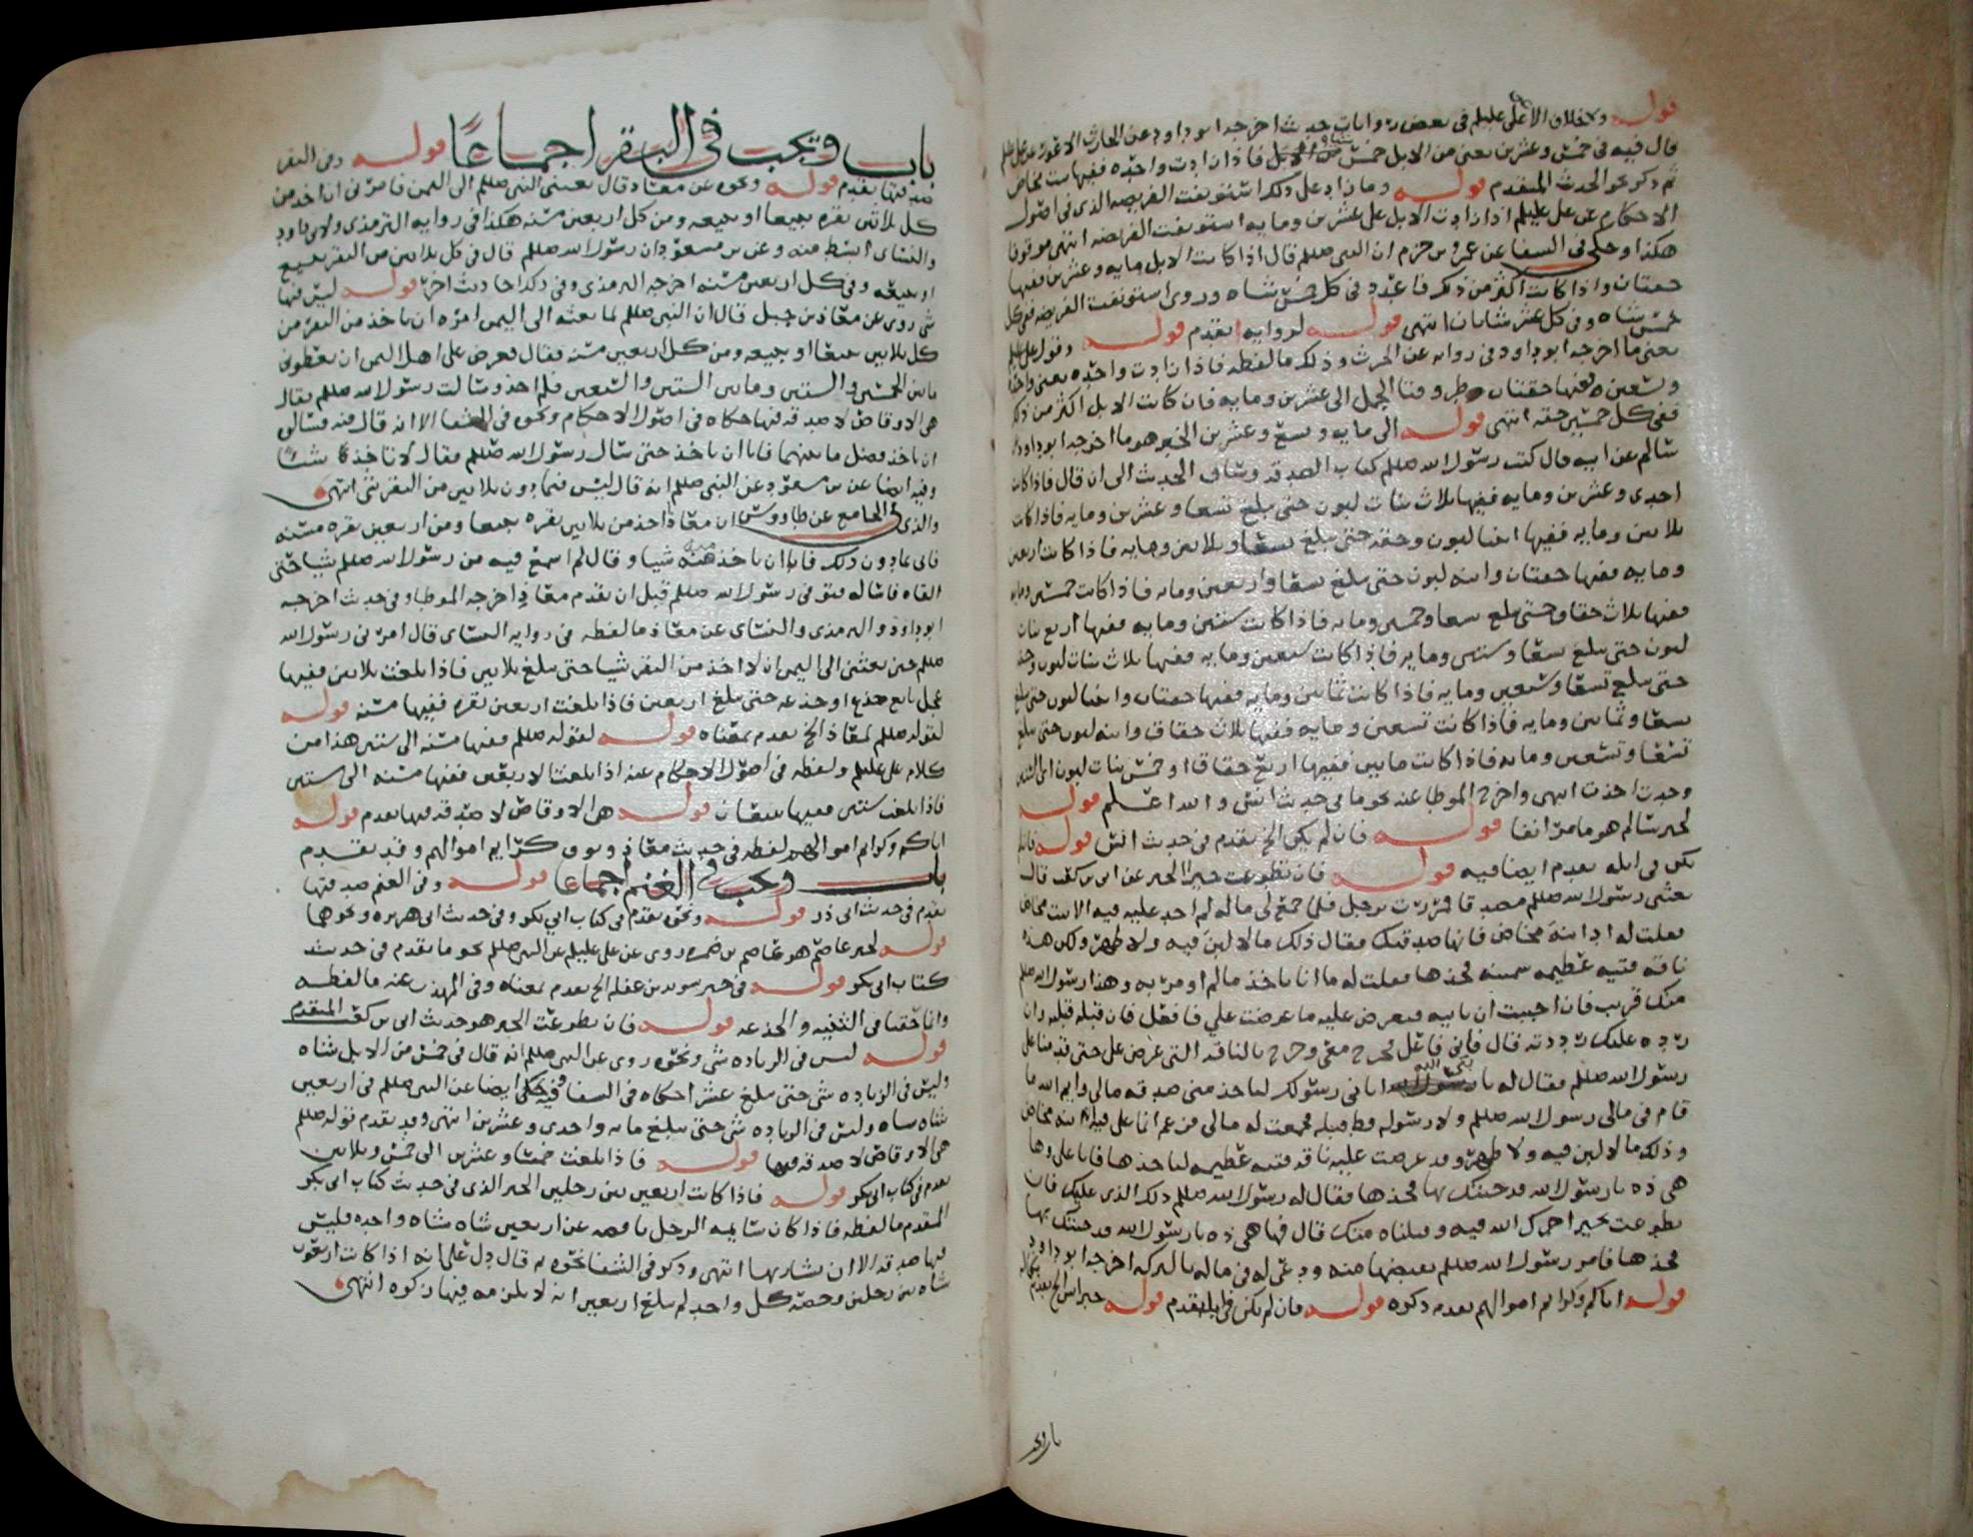 قوله ولا خلاف الا عن علي عليلم في بعض روايات حديث اخرجه ابو داود عن الحارث الاعور عن علي عليلم
قال فيه في خمس وعشرين يعني من الابل خمس من الابل فاذا زادت واحده ففيها بنت مخاض
ثم ذكر نحو الحديث المتقدم قوله وما زاد على ذلك استؤنفت الفريضه الذي في اصول
الاحكام عن علي عليلم اذا زادت الابل على عشرين ومايه استونفت الفريضه انتهى موقوفا
هكذا وحكى في الشفا عن عمرو بن حزم ان النبي صللم قال اذا كانت الابل مايه وعشرين ففيها
حقتان واذا كانت اكثر من ذلك فاعدد في كل خمس شاه وروى استونفت الفريضه ففي كل
خمس شاه وفي كل عشر شاتان انتهى قوله لروايه تقدم قوله وقول علي عليلم
يعني ما اخرجه ابو داود في روايه عن الحرث وذلك ما لفظه فاذا زادت واحده يعني واحدا
وتسعين ففيها حقتان طروقتا الجمل الى عشرين ومايه فان كانت الابل اكثر من ذلك
ففي كل خمسين حقه انتهى قوله الى مايه وتسع وعشرين الخبر هو ما اخرجه ابو داود
سالم عن ابيه قال كتب رسول الله صللم كتاب الصدقه وساق الحديث الى ان قال فاذا كانت
احدى وعشرين ومايه ففيها ثلاث بنات لبون حتى يبلغ تسعا وعشرين ومايه فاذا كانت
ثلاثين ومايه ففيها ابنتا لبون وحقه حتى يبلغ تسعا وثلاثين ومايه فاذا كانت اربعين
ومايه ففيها حقتان وابنه لبون حتى يبلغ تسعا واربعين ومايه فاذا كانت خمسين ومايه
ففيها ثلاث حقاق حتى يبلغ تسعا وخمسين ومايه فاذا كانت ستين ومايه ففيها اربع بنات
لبون حتى يبلغ تسعا وستين ومايه فاذا كانت سبعين ومايه ففيها ثلاث بنات لبون وحقه
حتى يبلغ تسعا وسبعين ومايه فاذا كانت ثمانين ومايه ففيها حقتان وابنتا لبون حتى يبلغ
تسعا وثمانين ومايه فاذا كانت تسعين ومايه ففيها ثلاث حقاق وابنه لبون حتى يبلغ
تسعا وتسعين ومايه فاذا كانت مايتين ففيها اربع حقاق او خمس بنات لبون اي السنين
وجدت اخذت انتهى واخرج الموطا عنه نحو ما في حديث انس والله اعلم قوله
لخبر سالم هو ما مر انفا قوله فان لم يكن الخ تقدم في حديث انس قوله فان لم
يكن في ابله تقدم ايضا فيه قوله فان تطوعت خيرا الخبر عن ابي بن كعب قال
بعثني رسول الله صللم مصدقا فمررت برجل فلما جمع لي ماله لم اجد عليه فيه الا بنت مخاض
فقلت له اد ابنة مخاض فانها صدقتك فقال ذلك ما لا لبن فيه ولا ظهر ولكن هذه
ناقه فتيه عظيمه سمينه فخذها فقلت له ما انا باخذ ما لم اومر به وهذا رسول الله صللم
منك قريب فان احببت ان تاتيه فتعرض عليه ما عرضت علي فافعل فان قبله قبلته وان
رده عليك رددته قال فاني فاعل فخرج معي وخرج بالناقه التي عرض علي حتى قدمنا على
رسول الله صللم فقال له يا نبي الله اتاني رسولك لياخذ مني صدقه مالي وايم الله ما
قام في مالي رسول الله صللم ولا رسوله قط قبله فجمعت له مالي فزعم انما علي فيه ابنه مخاض
وذلك ما لا لبن فيه ولا ظهر وقد عرضت عليه ناقه فتيه عظيمه لياخذها فابى علي وها
هي ذه يا رسول الله قد جئتك بها فخذها فقال له رسول الله صللم ذلك الذي عليك فان
تطوعت بخير اجرك الله فيه وقبلناه منك قال فها هي ذه يا رسول الله قد جئتك بها
فخذها فامر رسول الله صللم بقبضها منه ودعى له في ماله بالبركه اخرجه ابو داود
قوله اياكم وكرايم اموالهم تقدم ذكره قوله فان لم يكن في ابله تقدم قوله خبر انس الخ تقدم
باب وتجب في البقر اجماعا قوله وفي البقر
صدقتها تقدم قوله ونحوه عن معاذ قال بعثني النبي صللم الى اليمن فامرني ان اخذ من
كل ثلاثين بقره تبيعا او تبيعه ومن كل اربعين مسنه هكذا في روايه الترمذي ولابي داود
والنسائي ابسط منه وعن بن مسعود ان رسول الله صللم قال في كل ثلاثين من البقر تبيع
او تبيعه وفي كل اربعين مسنه اخرجه الترمذي وفي ذلك احاديث اخر قوله ليس فيها
شي روي عن معاذ بن جبل قال ان النبي صللم لما بعثه الى اليمن امره ان ياخذ من البقر من
كل ثلاثين تبيعا او تبيعه ومن كل اربعين مسنه فقال فعرض علي اهل اليمن ان يعطوني
ما بين الخمسين والستين وما بين الستين والسبعين فلم اخذ وسالت رسول الله صللم فقال
هي الاوقاص لا صدقه فيها حكاه في اصول الاحكام ونحوه في الشفا الا انه قال فيه فسالوه
ان ياخذ فضل ما بينهما فابا ان ياخذ حتى سال رسول الله صللم فقال لا تاخذ شيئا
وفيه ايضا عن بن مسعود عن النبي صللم انه قال ليس فيما دون ثلاثين من البقر شي انتهى
والذي في الجامع عن طاووس ان معاذا اخذ من ثلاثين بقره تبيعا ومن اربعين بقره مسنه
فاتي بما دون ذلك فابا ان ياخذ منه شيا وقال لم اسمع فيه من رسول الله صللم شيا حتى
القاه فاساله فتوفي رسول الله صللم قبل ان يقدم معاذ اخرجه الموطا وفي حديث اخرجه
ابو داود والترمذي والنسائي عن معاذ ما لفظه في روايه النسائي قال امرني رسول الله
صللم حين بعثني الى اليمن ان لا اخذ من البقر شيا حتى يبلغ ثلاثين فاذا بلغت ثلاثين ففيها
عجل تابع جذع او جذعه حتى يبلغ اربعين فاذا بلغت اربعين بقره ففيها مسنه قوله
لقوله صللم لمعاذ الخ تقدم بمعناه قوله لقوله صللم ففيها مسنه الى ستين هذا من
كلام علي عليلم ولفظه في اصول الاحكام عنه اذا بلغت الاربعين ففيها مسنه الى ستين
فاذا بلغت ستين ففيها تبيعان قوله هي الاوقاص لا صدقه فيها تقدم قوله
اياك وكرايم اموالهم لفظه في حديث معاذ وتوق كرايم اموالهم وقد تقدم
باب وتجب في الغنم اجماعا قوله وفي الغنم صدقتها
تقدم في حديث ابي ذر قوله ونحوه تقدم في كتاب ابي بكر وفي حديث ابي هريره ونحوهما
قوله لخبر عاصم هو عاصم بن ضمره روى عن علي عليلم عن النبي صللم نحو ما تقدم في حديث
كتاب ابي بكر قوله في خبر سويد بن غفله الخ تقدم بمعناه وفي المهذب عنه ما لفظه
وانا حقنا في الثنيه والجذعه قوله فان تطوعت الخبر هو حديث ابي بن كعب المتقدم
قوله ليس في الزياده شي ونحوه روي عن النبي صللم انه قال في خمس من الابل شاه
وليس في الزياده شي حتى يبلغ عشرا حكاه في الشفا وفيه حكى ايضا عن النبي صللم في اربعين
شاه شاه وليس في الزياده شي حتى يبلغ مايه واحدى وعشرين انتهى وقد تقدم قوله صللم
هي الاوقاص لا صدقه فيها قوله فاذا بلغت خمسا وعشرين الى خمس وثلاثين
تقدم في كتاب ابي بكر قوله فاذا كانت اربعين بين رجلين الخبر الذي في حديث كتاب ابي بكر
المتقدم ما لفظه فاذا كان سايمه الرجل ناقصه عن اربعين شاه شاه واحده فليس
فيها صدقه الا ان يشا ربها انتهى وذكر في الشفا نحوه ثم قال دل على انه اذا كانت اربعون
شاه بين رجلين وحصه كل واحد لم يبلغ اربعين انه لا يلزمه فيها زكوه انتهى